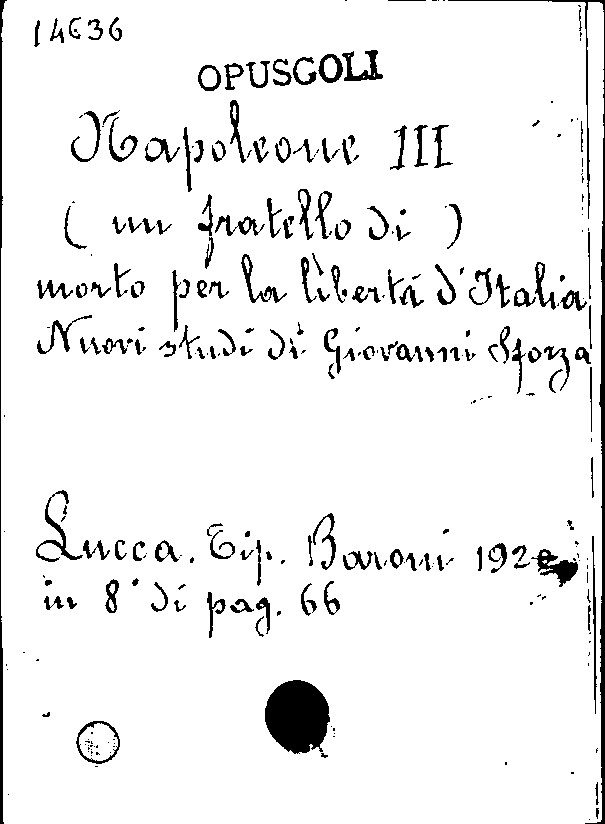 14636
OPUSCOLI
Napoleone III
( un fratello di )
morto per la libertá d'Italia
Nuovi studi di Giovanni Sforza
Lucca. Tip. Baroni
in 8° di pag. 66